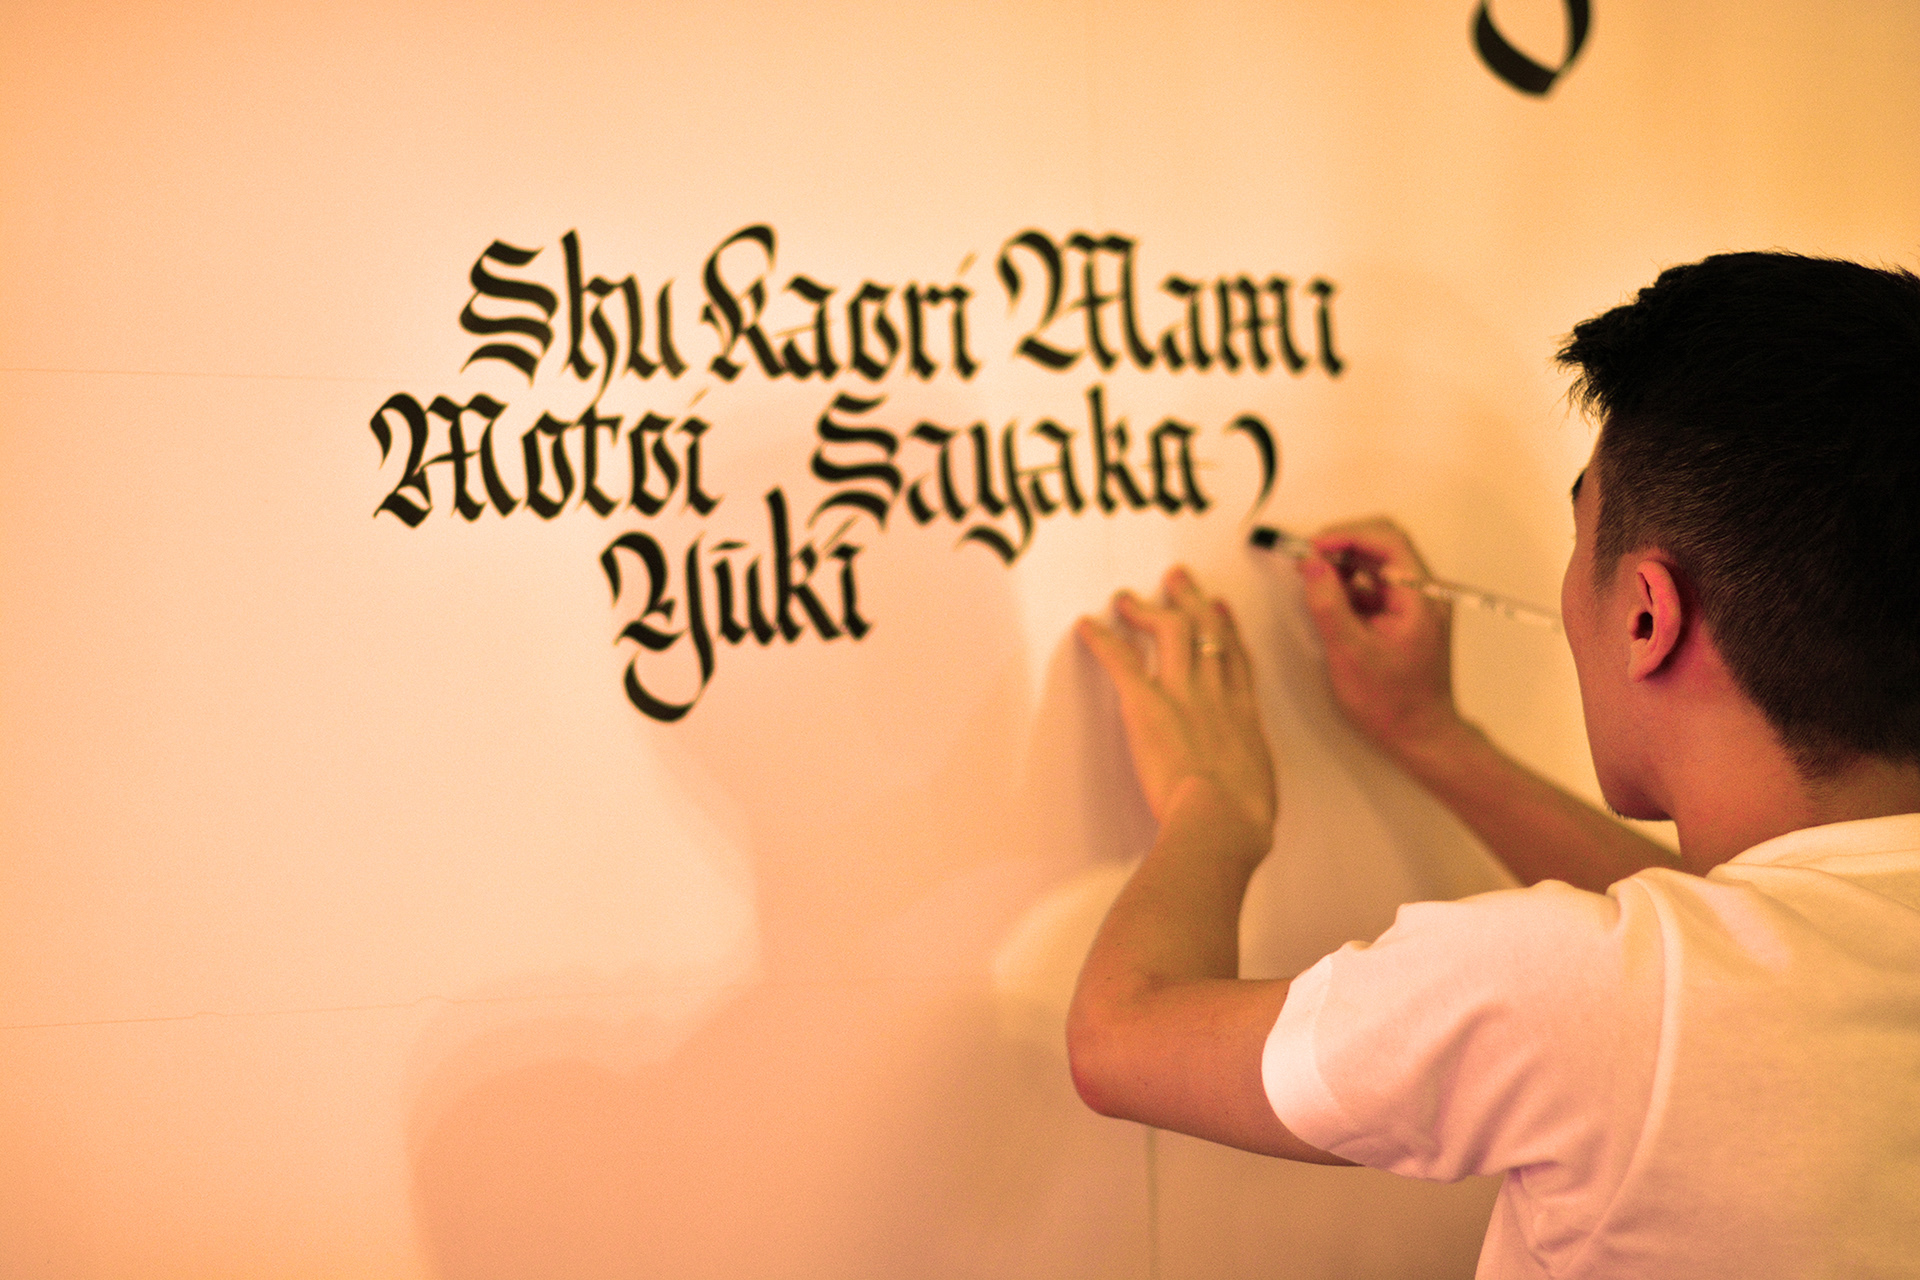 Shu Kaori Mami
Motoi Sayaka
Yūki